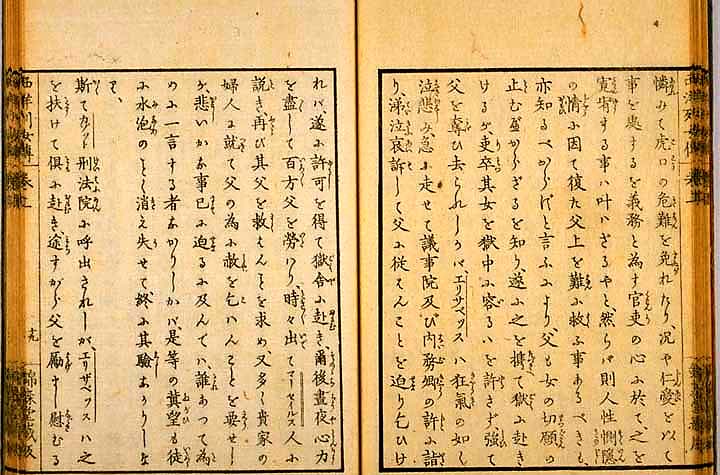 憐みて虎口の危難を免れたり、況や仁愛を以て
事を處するを義務と為す官吏の心に於て、之を
寛宥する事ハ叶ハざるやと、然らバ則人性惻隠
の情に因て復た父上を難に救ふ事あるべきも、
亦知るべからずと言ふにより、父も女の切願の
止む可からざるを知り、遂に之を携て獄に赴き
けるが、吏卒其女を獄中に容るゝを許さず、強て
父を奪ひ去られしかバ、エリサベッスハ狂氣の如し
泣悲み、急に走せて議事院及び内務卿の許に詣
り、涕泣哀訴して父に従てんことを迫り乞ひけ
れバ、遂に許可を得て獄舎に赴き、爾後晝夜心力
を盡して百方父を勞ハり、時々出てマーセールス人に
説き、再び其父を救はんことを求め、又多く貴家の
婦人に就て父の為に赦を乞ハんことを要せし
が、悲いかな事已に迫るに及んてハ、誰あつて為
のに一言する者なかりしかバ、是等の冀望も徒
に水泡のごとく消え失せて終に其驗なかりしな
り、
斯てカゾット刑法院に呼出されしが、エリサベッスハ之
を扶けて倶に赴き、途すがら父を勵まし慰むる
西洋列女傳 巻五
西洋列女傳 巻五
十九
錦森堂蔵版